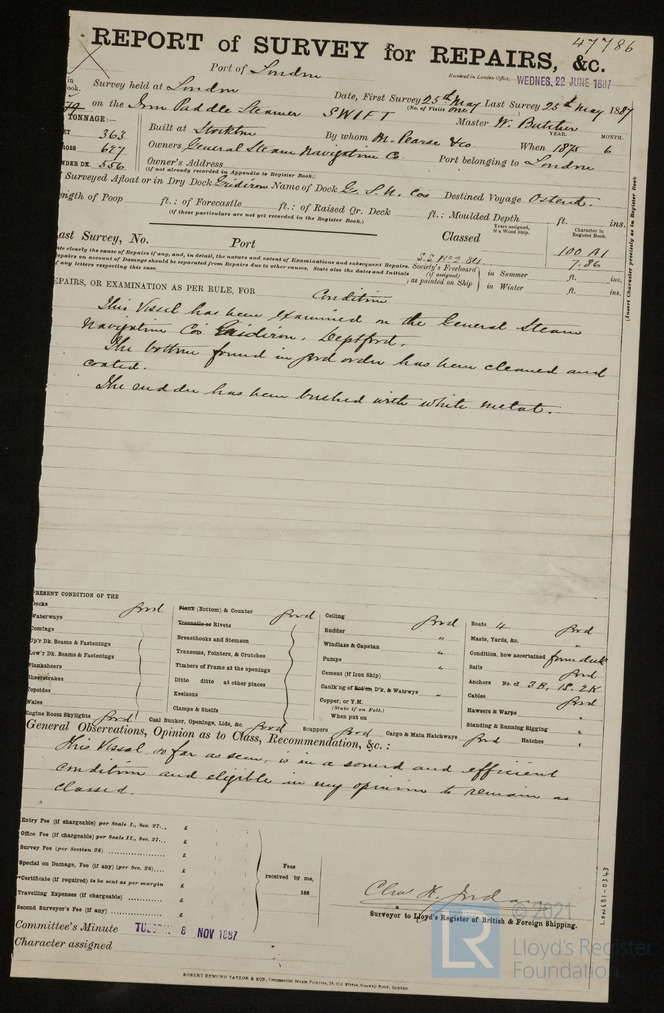 47786
REPORT of SURVEY for REPAIRS, &c.
Port of London
Received in London Office, WEDNES. 22 JUNE 1887
Survey held at London Date, First Survey 25th May Last Survey 25th May 1887
(No. of Visits one)
on the Iron Paddle Steamer SWIFT Master W. Butcher
TONNAGE:—
363
Built at Stockton By whom M. Pearse & Co. When 1875 6
YEAR. MONTH.
647
Owners General Steam Navigation Co Port belonging to London
UNDER DK. 556
Owner's Address
(if not already recorded in Appendix to Register Book.)
Surveyed Afloat or in Dry Dock Gridiron Name of Dock G. S. N. Cos Destined Voyage Ostend.
Length of Poop ft.: of Forecastle ft.: of Raised Qr. Deck ft.: Moulded Depth ft. ins.
(if these particulars are not yet recorded in the Register Book.)
Last Survey, No. Port Classed
Years assigned, if a Wood Ship.
Character in Register Book.
100 A1
7.86
S.S. No 2.
Society's Freeboard (if assigned) as painted on Ship
in Summer ft. ins.
in Winter ft. ins.
(Insert Character precisely as in Register Book)
REPAIRS, OR EXAMINATION AS PER RULE, FOR Condition
This Vessel has been examined on the General Steam
Navigation Co's Gridiron, Deptford.
The bottom found in good order has been cleaned and
coated.
The rudder has been bushed with white metal.
PRESENT CONDITION OF THE
Decks good
Waterways
Comings
Up'r Dk. Beams & Fastenings
Low'r Dk. Beams & Fastenings
Planksheers
Sheerstrakes
Topsides
Wales
Engine Room Skylights good
Plank (Bottom) & Counter good
Treenails or Rivets
Breasthooks and Stemson
Transoms, Pointers, & Crutches
Timbers of Frame at the openings
Ditto ditto at other places
Keelsons
Clamps & Shelfs
Coal Bunker, Openings, Lids, &c. good
Ceiling good
Rudder "
Windlass & Capstan "
Pumps "
Cement (if Iron Ship)
Caulk'ng of Bot'm D'k, & Watrwys "
Copper, or Y.M.
(State if on Felt.)
When put on
Scuppers good Cargo & Main Hatchways good
Boats 4 good
Masts, Yards, &c. "
Condition, how ascertained from deck
Sails good
Anchors No. of 3 B. 1 S. 2 K
Cables good
Hawsers & Warps "
Standing & Running Rigging "
Hatches "
General Observations, Opinion as to Class, Recommendation, &c.:
This Vessel, so far as seen, is in a sound and efficient
condition and eligible in my opinion to remain as
classed.
Entry Fee (if chargeable) per Scale I., Sec. 27... £
Office Fee (if chargeable) per Scale II., Sec. 27... £
Survey Fee (per Section 28) £
Special on Damage, Fee (if any) (per Sec. 28) £
Certificate (if required) to be sent as per margin £
Travelling Expenses (if chargeable) £
Second Surveyor's Fee (if any) £
Fees received by me, 188
Surveyor to Lloyd's Register of British & Foreign Shipping.
Committee's Minute NOV 1887
Character assigned
LON681-0343
ROBERT EDMUND TAYLOR & SON
© 2021
LR
Lloyd's Register
Foundation